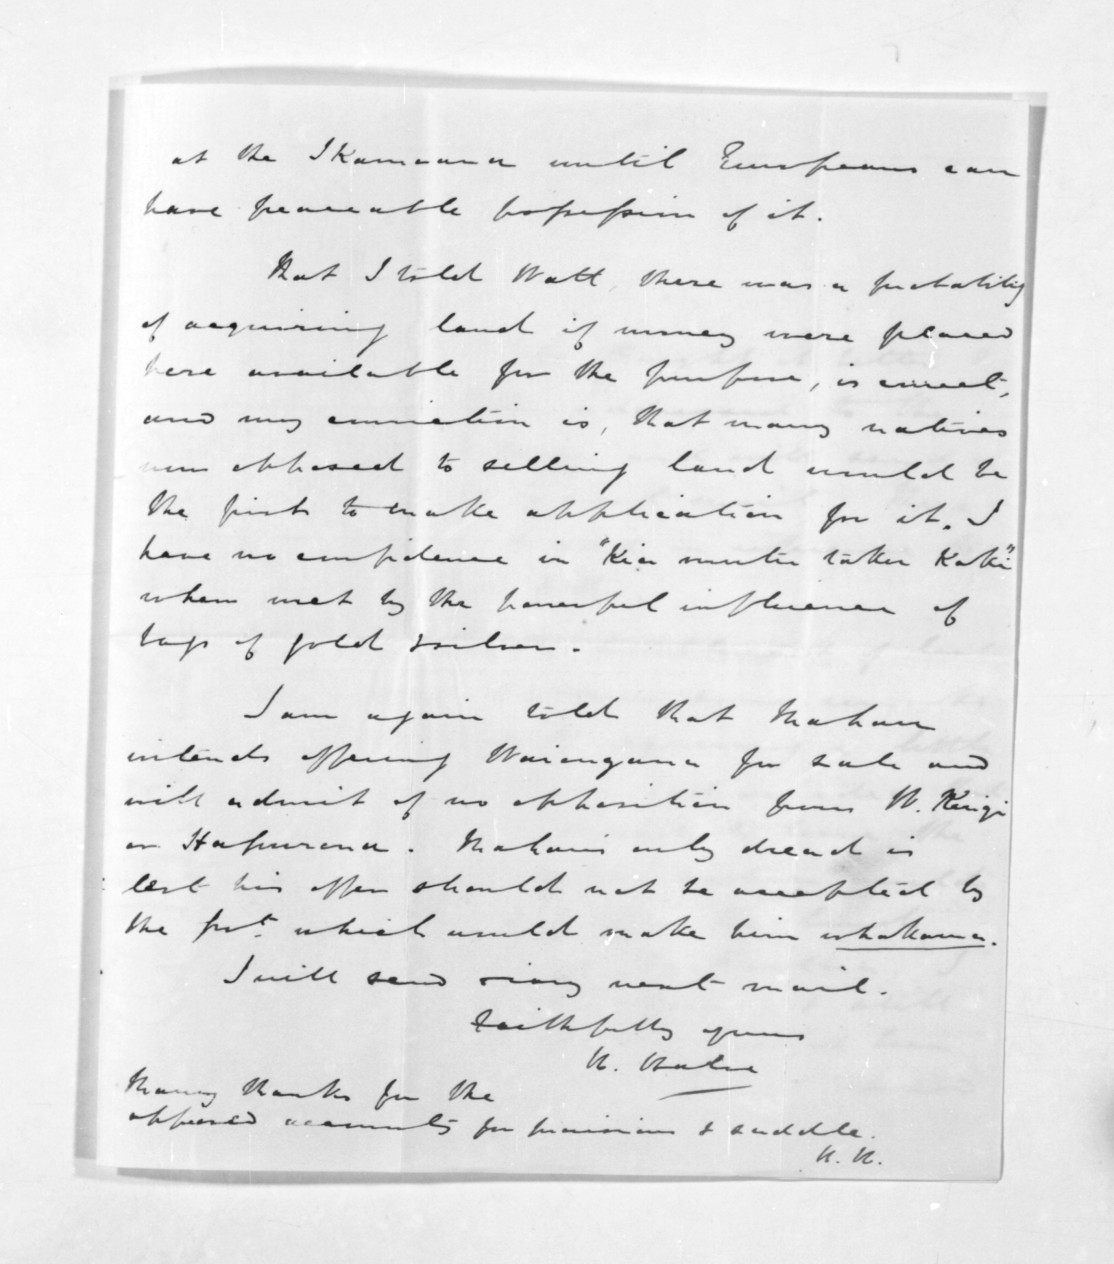 at the Ikamoana until Europeans can
have peaceable possession of it.
That I told Watt, there was a probability
of acquiring land if money were placed
here available for the purpose, is correct,
and my conviction is, that many natives
now opposed to selling land would be
the first to make application for it. I
have no confidence in "Kia mutu
when met by the powerful influence of
bags of gold & silver.
I am again told that Mahau
intends offering Waiongana for sale and
will admit of no opposition from W. Kingi
or Hapurona. Mahau's only dread is
lest his offer should not be accepted by
the Govt. which would make him whakama.
I will send diary next mail.
Faithfully yours
H. Halse
Many thanks for the
approved accounts for provisions & saddle.
H. H.